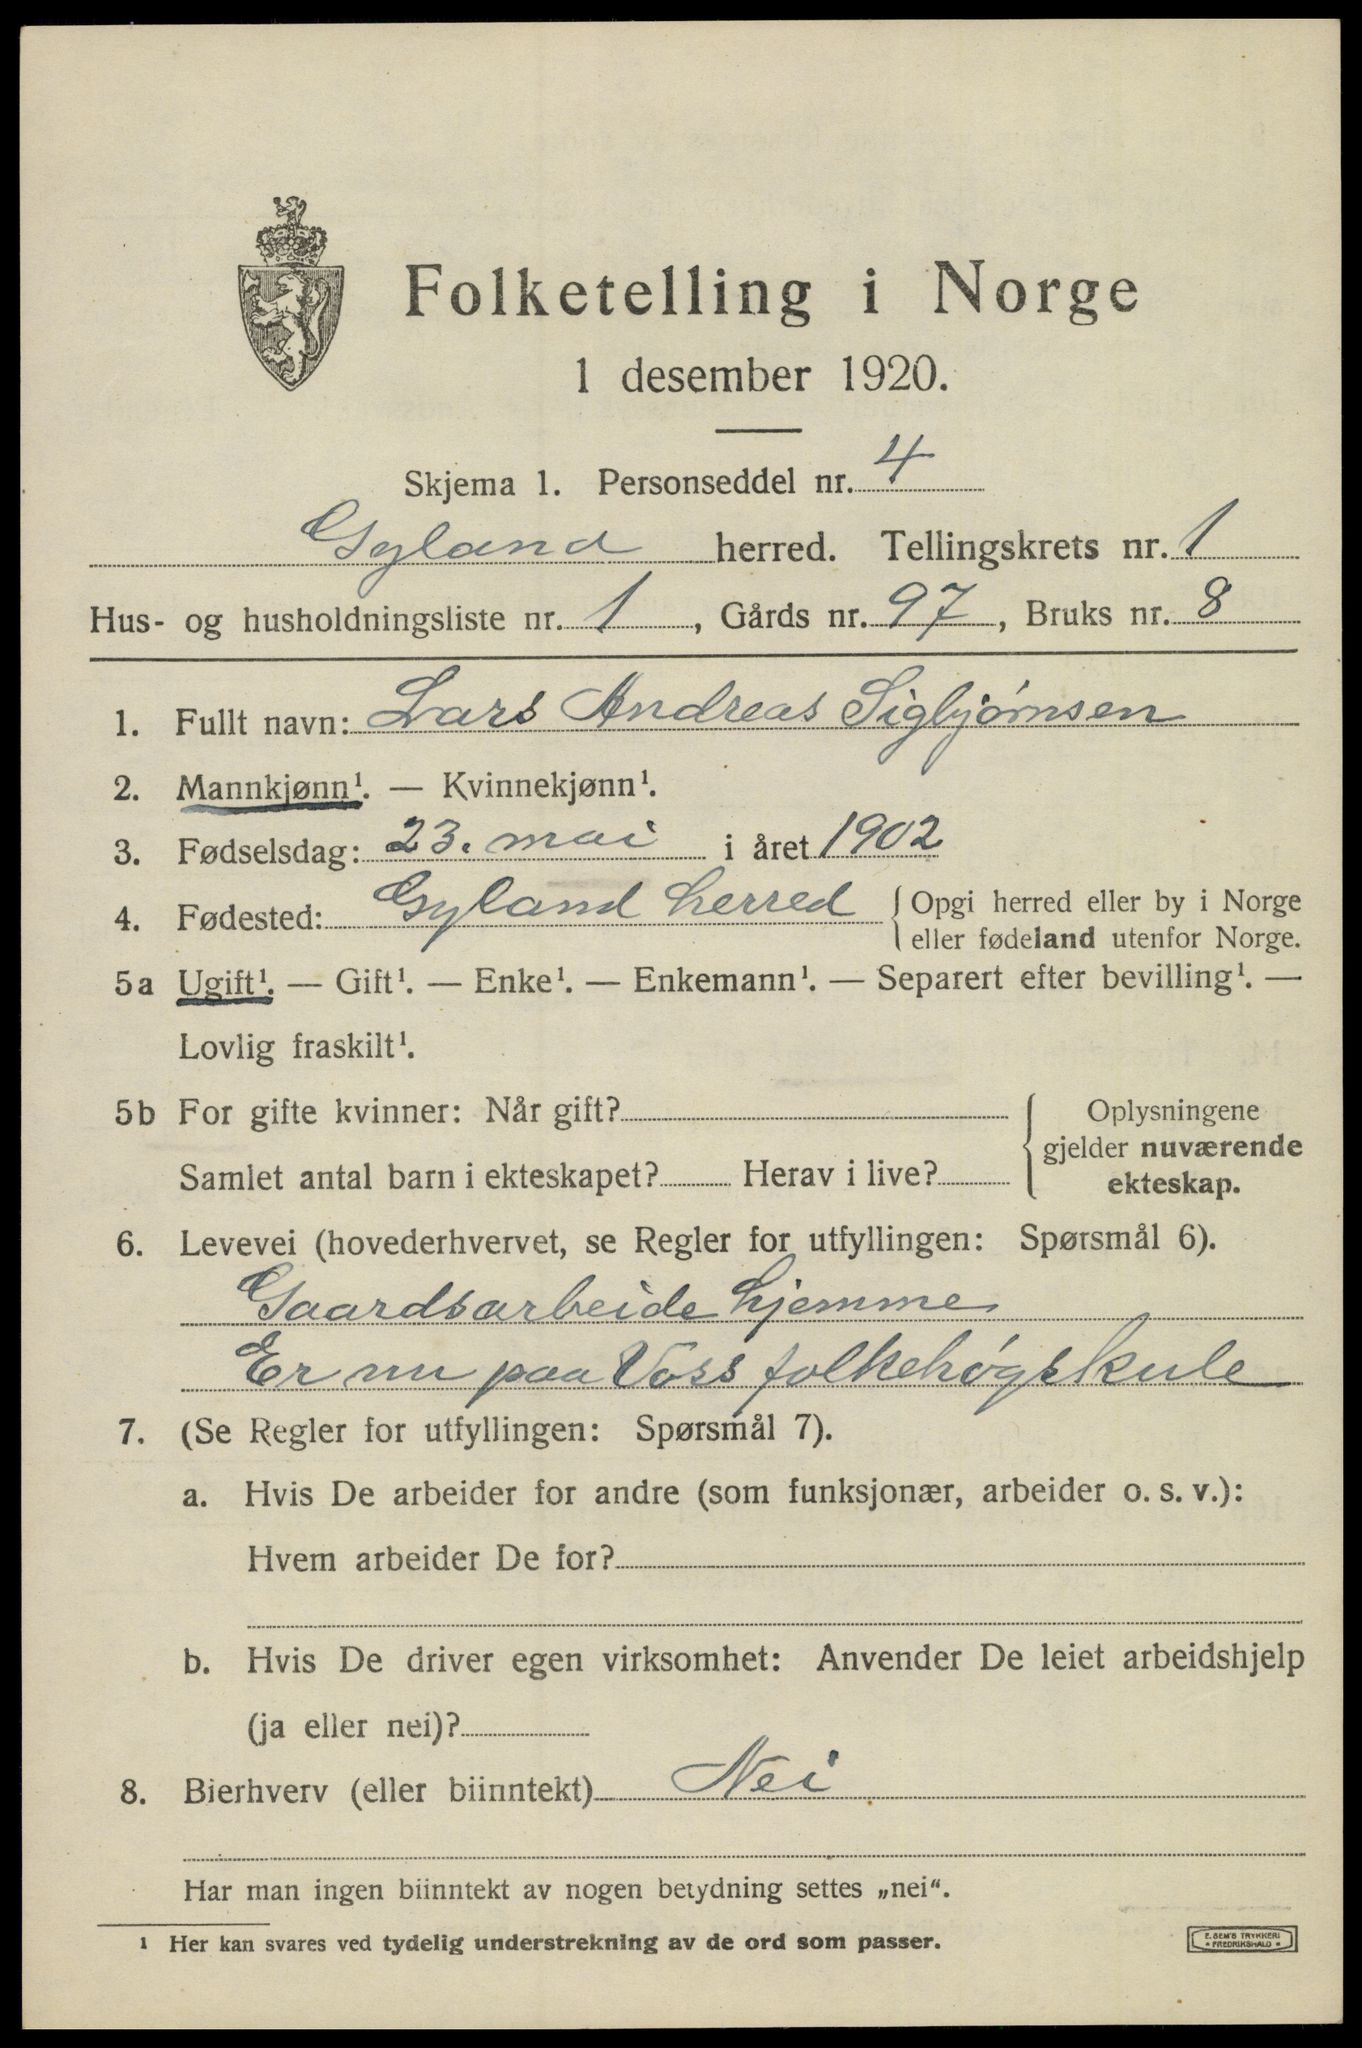 Folketelling i Norge
1 desember 1920.
Skjema 1. Personseddel nr. 4
Gyland herred. Tellingskrets nr. 1
Hus- og husholdningsliste nr. 1, Gårds nr. 97, Bruks nr. 8
1. Fullt navn: Lars Andreas Sigbjørnsen
2. Mannkjønn¹. — Kvinnekjønn¹.
3. Fødselsdag: 23. mai i året 1902
4. Fødested: Gyland herred { Opgi herred eller by i Norge
eller fødeland utenfor Norge.
5a Ugift¹. — Gift¹. — Enke¹. — Enkemann¹. — Separert efter bevilling¹. —
Lovlig fraskilt¹.
5b For gifte kvinner: Når gift?
Samlet antal barn i ekteskapet? Herav i live?
Oplysningene
gjelder nuværende
ekteskap.
6. Levevei (hovederhvervet, se Regler for utfyllingen: Spørsmål 6).
Gaardsarbeide hjemme
Er nu paa Voss folkehøgskule
7. (Se Regler for utfyllingen: Spørsmål 7).
a. Hvis De arbeider for andre (som funksjonær, arbeider o. s. v.):
Hvem arbeider De for?
b. Hvis De driver egen virksomhet: Anvender De leiet arbeidshjelp
(ja eller nei)?
8. Bierhverv (eller biinntekt) Nei
Har man ingen biinntekt av nogen betydning settes „nei“.
¹ Her kan svares ved tydelig understrekning av de ord som passer.
E. SEM'S TRYKKERI
• FREDRIKSHALD •